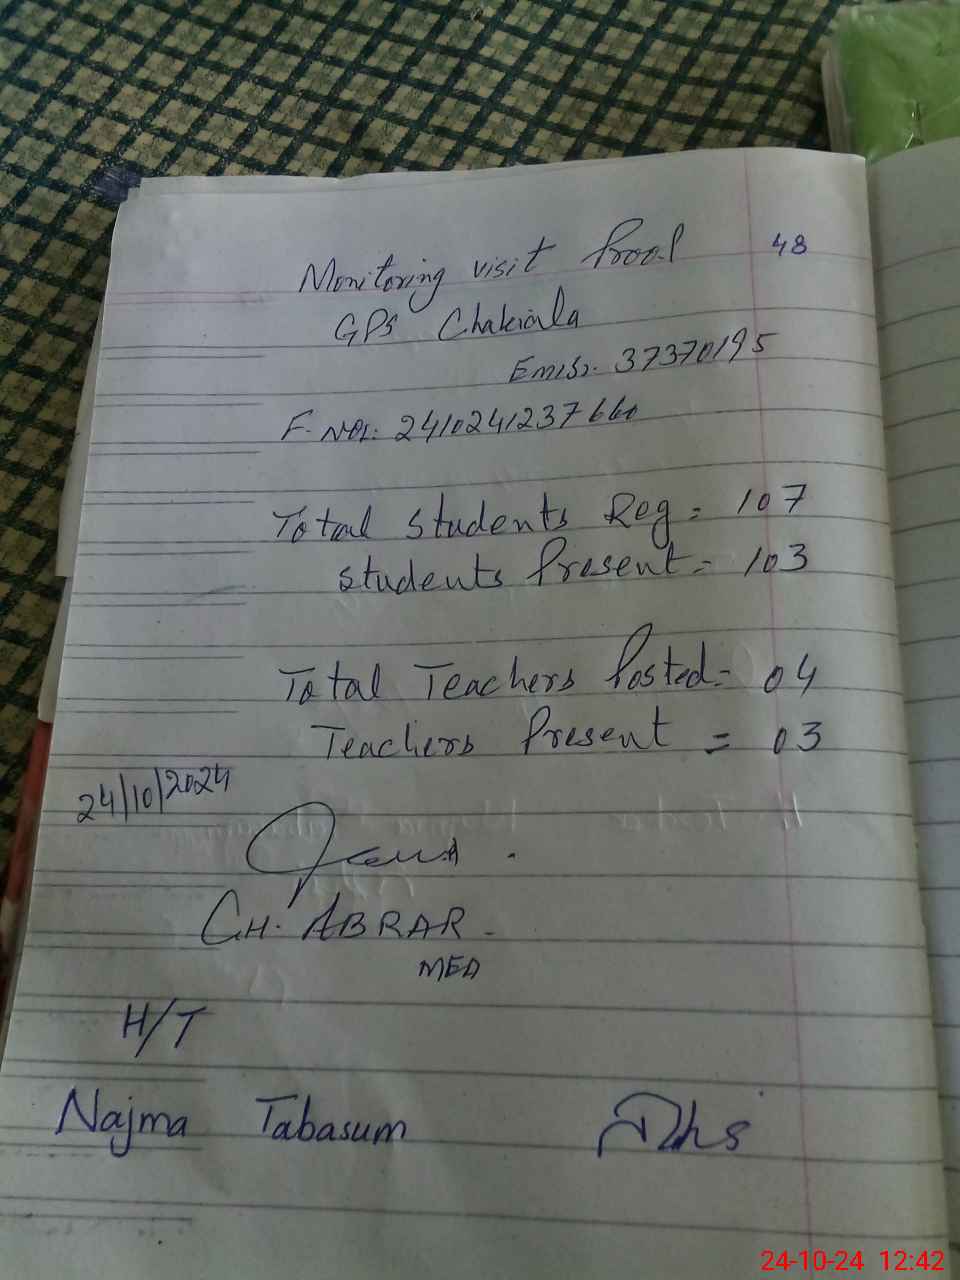 48
Monitoring visit Proof
GPS Chakiala
Emis:. 37370195
F. No.: 2410241237660
Total Students Reg = 107
Students Present = 103
Total Teachers Posted = 04
Teachers Present = 03
24/10/2024
CH. ABRAR.
MEA
H/T
Najma Tabasum
24-10-24 12:42